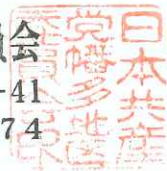 会
-41
74
日本共産
党幡多地